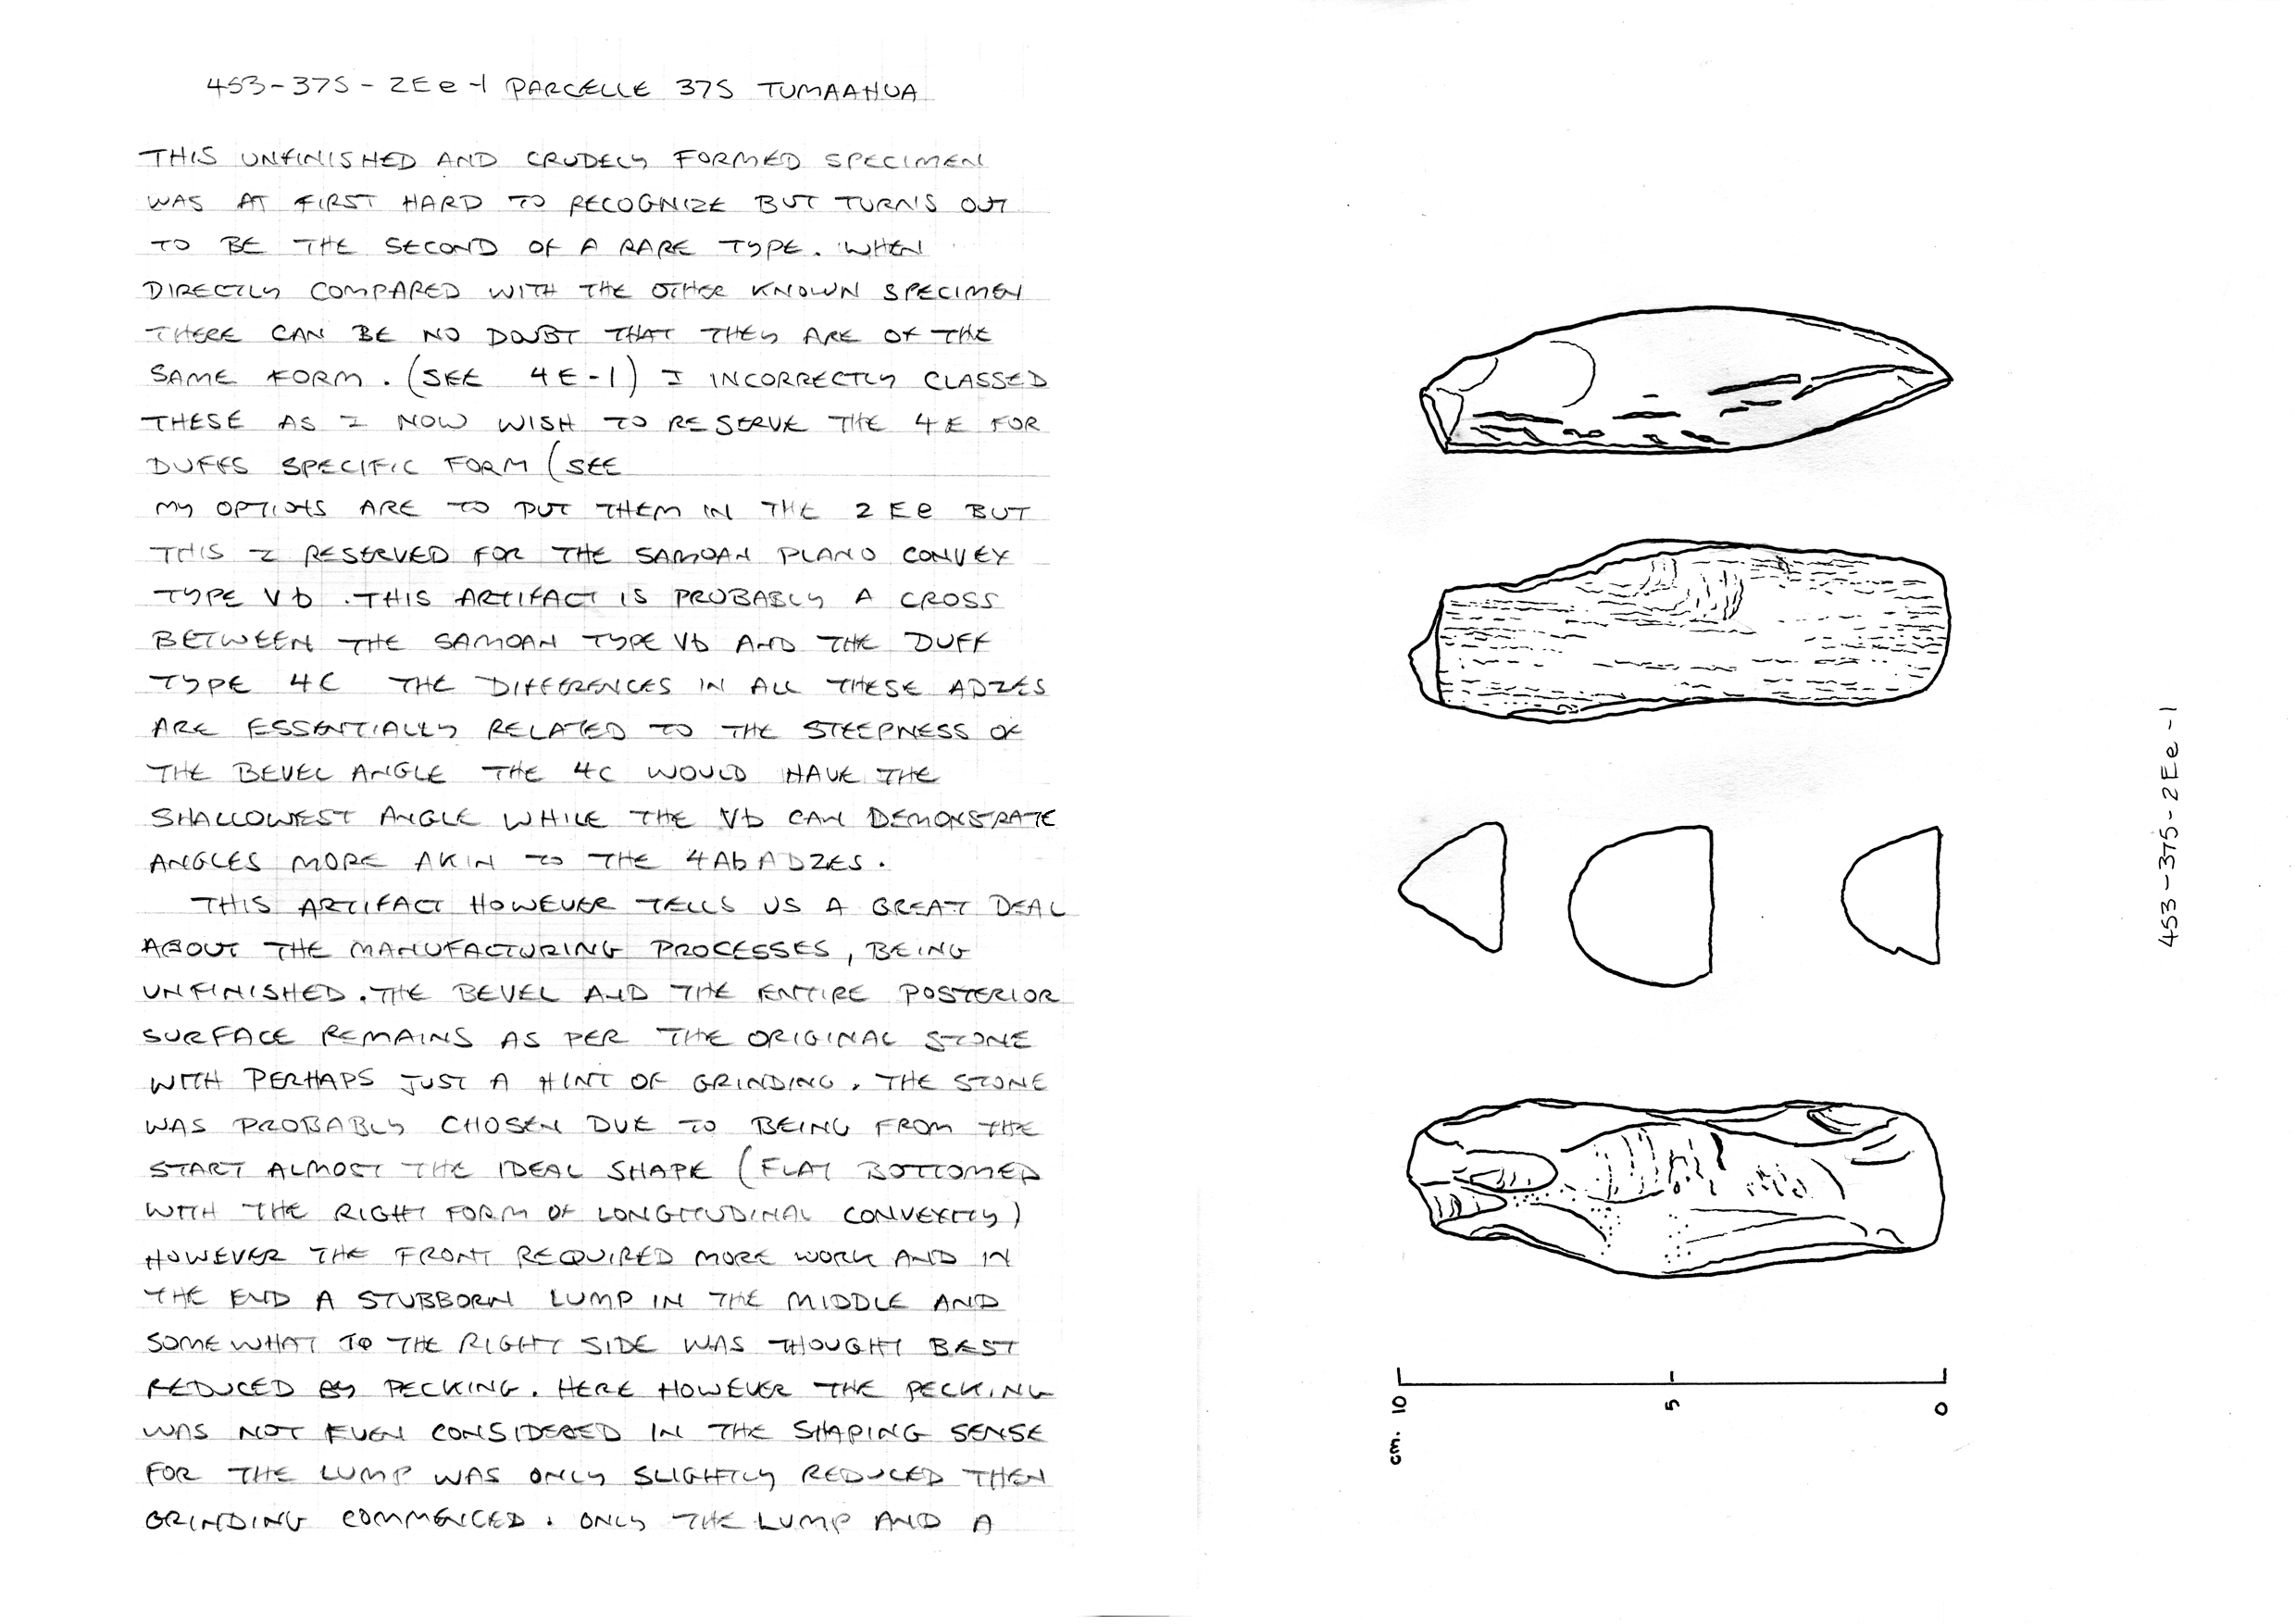 453-375-2Ee-1 PARCELLE 375 TUMAAHUA
THIS UNFINISHED AND CRUDELY FORMED SPECIMEN
WAS AT FIRST HARD TO RECOGNIZE BUT TURNS OUT
TO BE THE SECOND OF A RARE TYPE. WHEN
DIRECTLY COMPARED WITH THE OTHER KNOWN SPECIMEN
THERE CAN BE NO DOUBT THAT THEY ARE OF THE
SAME FORM. (SEE 4E-1) I INCORRECTLY CLASSED
THESE AS I NOW WISH TO RESERVE THE 4E FOR
DUFFS SPECIFIC FORM (SEE
MY OPTIONS ARE TO PUT THEM IN THE 2Ee BUT
THIS I RESERVED FOR THE SAMOAN PLANO CONVEX
TYPE Vb. THIS ARTIFACT IS PROBABLY A CROSS
BETWEEN THE SAMOAN TYPE Vb AND THE DUFF
TYPE 4C THE DIFFERENCES IN ALL THESE ADZES
ARE ESSENTIALLY RELATED TO THE STEEPNESS OF
THE BEVEL ANGLE THE 4C WOULD HAVE THE
SHALLOWEST ANGLE WHILE THE Vb CAN DEMONSTRATE
ANGLES MORE AKIN TO THE 4Ab ADZES.
THIS ARTIFACT HOWEVER TELLS US A GREAT DEAL
ABOUT THE MANUFACTURING PROCESSES, BEING
UNFINISHED. THE BEVEL AND THE ENTIRE POSTERIOR
SURFACE REMAINS AS PER THE ORIGINAL STONE
WITH PERHAPS JUST A HINT OF GRINDING. THE STONE
WAS PROBABLY CHOSEN DUE TO BEING FROM THE
START ALMOST THE IDEAL SHAPE (FLAT BOTTOMED
WITH THE RIGHT FORM OF LONGITUDINAL CONVEXITY)
HOWEVER THE FRONT REQUIRED MORE WORK AND IN
THE END A STUBBORN LUMP IN THE MIDDLE AND
SOMEWHAT TO THE RIGHT SIDE WAS THOUGHT BEST
REDUCED BY PECKING. HERE HOWEVER THE PECKING
WAS NOT EVEN CONSIDERED IN THE SHAPING SENSE
FOR THE LUMP WAS ONLY SLIGHTLY REDUCED THEN
GRINDING COMMENCED. ONLY THE LUMP AND A
453-375-2Ee-1
cm. 10 5 0